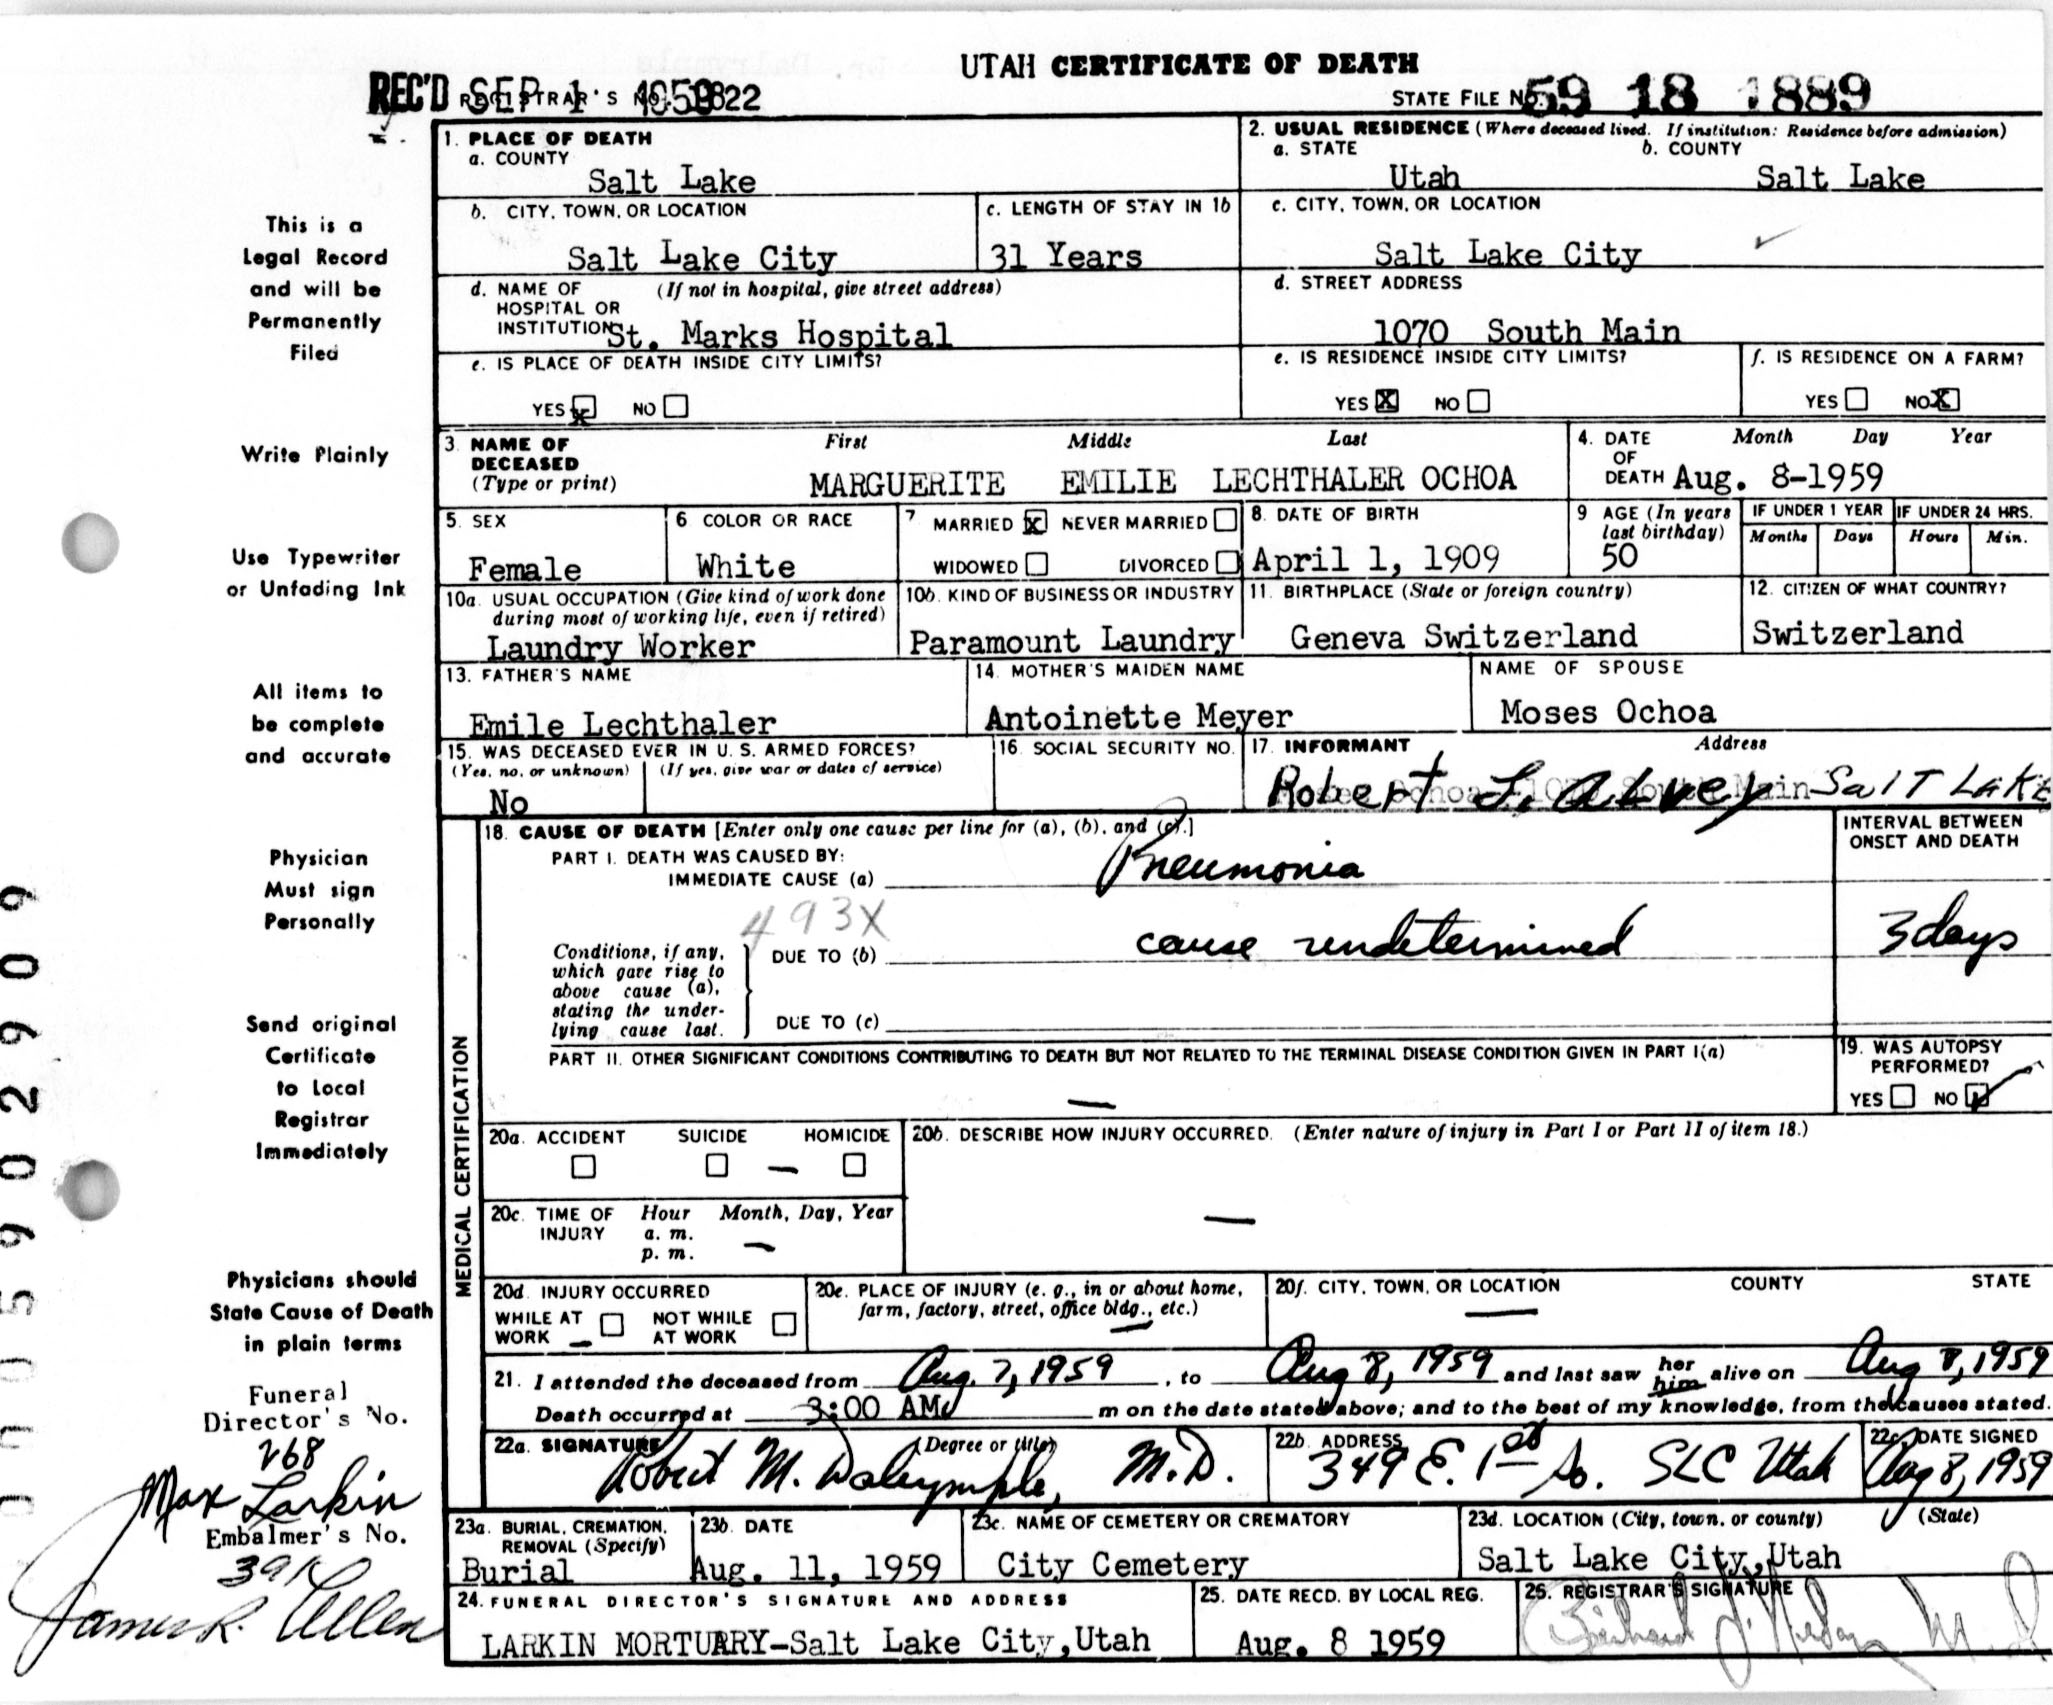 UTAH CERTIFICATE OF DEATH
REC'D SEP 1 1959 REGISTRAR'S NO. 1822
STATE FILE NO. 59 18 1889
1. PLACE OF DEATH
a. COUNTY
Salt Lake
2. USUAL RESIDENCE (Where deceased lived. If institution: Residence before admission)
a. STATE b. COUNTY
Utah Salt Lake
b. CITY, TOWN, OR LOCATION
Salt Lake City
c. LENGTH OF STAY IN 1b
31 Years
c. CITY, TOWN, OR LOCATION
Salt Lake City
d. NAME OF (If not in hospital, give street address)
HOSPITAL OR
INSTITUTION St. Marks Hospital
d. STREET ADDRESS
1070 South Main
e. IS PLACE OF DEATH INSIDE CITY LIMITS?
YES X NO
e. IS RESIDENCE INSIDE CITY LIMITS?
YES X NO
f. IS RESIDENCE ON A FARM?
YES NO X
3. NAME OF DECEASED First Middle Last
(Type or print) MARGUERITE EMILIE LECHTHALER OCHOA
4. DATE OF DEATH Month Day Year
Aug. 8-1959
5. SEX
Female
6 COLOR OR RACE
White
7 MARRIED X NEVER MARRIED
WIDOWED DIVORCED
8. DATE OF BIRTH
April 1, 1909
9 AGE (In years last birthday)
50
IF UNDER 1 YEAR IF UNDER 24 HRS.
Months Days Hours Min.
10a. USUAL OCCUPATION (Give kind of work done
during most of working life, even if retired)
Laundry Worker
10b. KIND OF BUSINESS OR INDUSTRY
Paramount Laundry
11. BIRTHPLACE (State or foreign country)
Geneva Switzerland
12. CITIZEN OF WHAT COUNTRY?
Switzerland
13. FATHER'S NAME
Emile Lechthaler
14. MOTHER'S MAIDEN NAME
Antoinette Meyer
NAME OF SPOUSE
Moses Ochoa
15. WAS DECEASED EVER IN U. S. ARMED FORCES?
(Yes, no, or unknown) (If yes, give war or dates of service)
No
16. SOCIAL SECURITY NO.
17. INFORMANT Address
Robert L. Alvey Salt Lake
MEDICAL CERTIFICATION
18. CAUSE OF DEATH [Enter only one cause per line for (a), (b), and (c).]
PART I. DEATH WAS CAUSED BY:
IMMEDIATE CAUSE (a) Pneumonia
INTERVAL BETWEEN
ONSET AND DEATH
3 days
493X
Conditions, if any,
which gave rise to
above cause (a),
stating the under-
lying cause last.
DUE TO (b) cause undetermined
DUE TO (c)
PART II. OTHER SIGNIFICANT CONDITIONS CONTRIBUTING TO DEATH BUT NOT RELATED TO THE TERMINAL DISEASE CONDITION GIVEN IN PART I(a)
—
19. WAS AUTOPSY
PERFORMED?
YES NO
20a. ACCIDENT SUICIDE HOMICIDE
—
20b. DESCRIBE HOW INJURY OCCURRED. (Enter nature of injury in Part I or Part II of item 18.)
—
20c. TIME OF INJURY Hour Month, Day, Year
a. m.
p. m. —
20d. INJURY OCCURRED
WHILE AT WORK NOT WHILE AT WORK
20e. PLACE OF INJURY (e. g., in or about home,
farm, factory, street, office bldg., etc.)
20f. CITY, TOWN, OR LOCATION COUNTY STATE
—
21. I attended the deceased from Aug. 7, 1959, to Aug 8, 1959 and last saw her him alive on Aug 8, 1959
Death occurred at 3:00 AM m on the date stated above; and to the best of my knowledge, from the causes stated.
22a. SIGNATURE (Degree or title)
Robert M. Dalrymple, M.D.
22b. ADDRESS
349 E. 1st So. SLC Utah
22c. DATE SIGNED
Aug 8, 1959
23a. BURIAL, CREMATION,
REMOVAL (Specify)
Burial
23b. DATE
Aug. 11, 1959
23c. NAME OF CEMETERY OR CREMATORY
City Cemetery
23d. LOCATION (City, town, or county) (State)
Salt Lake City, Utah
24. FUNERAL DIRECTOR'S SIGNATURE AND ADDRESS
LARKIN MORTUARY-Salt Lake City, Utah
25. DATE RECD. BY LOCAL REG.
Aug. 8 1959
26. REGISTRAR'S SIGNATURE
This is a
Legal Record
and will be
Permanently
Filed
Write Plainly
Use Typewriter
or Unfading Ink
All items to
be complete
and accurate
Physician
Must sign
Personally
Send original
Certificate
to Local
Registrar
Immediately
Physicians should
State Cause of Death
in plain terms
Funeral
Director's No.
268
Max Larkin
Embalmer's No.
391
James R. Allen